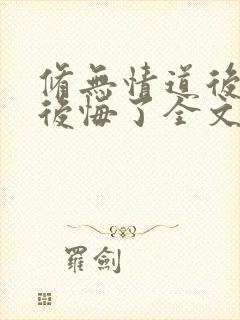 脩無情道後
後悔了全文
羅劍